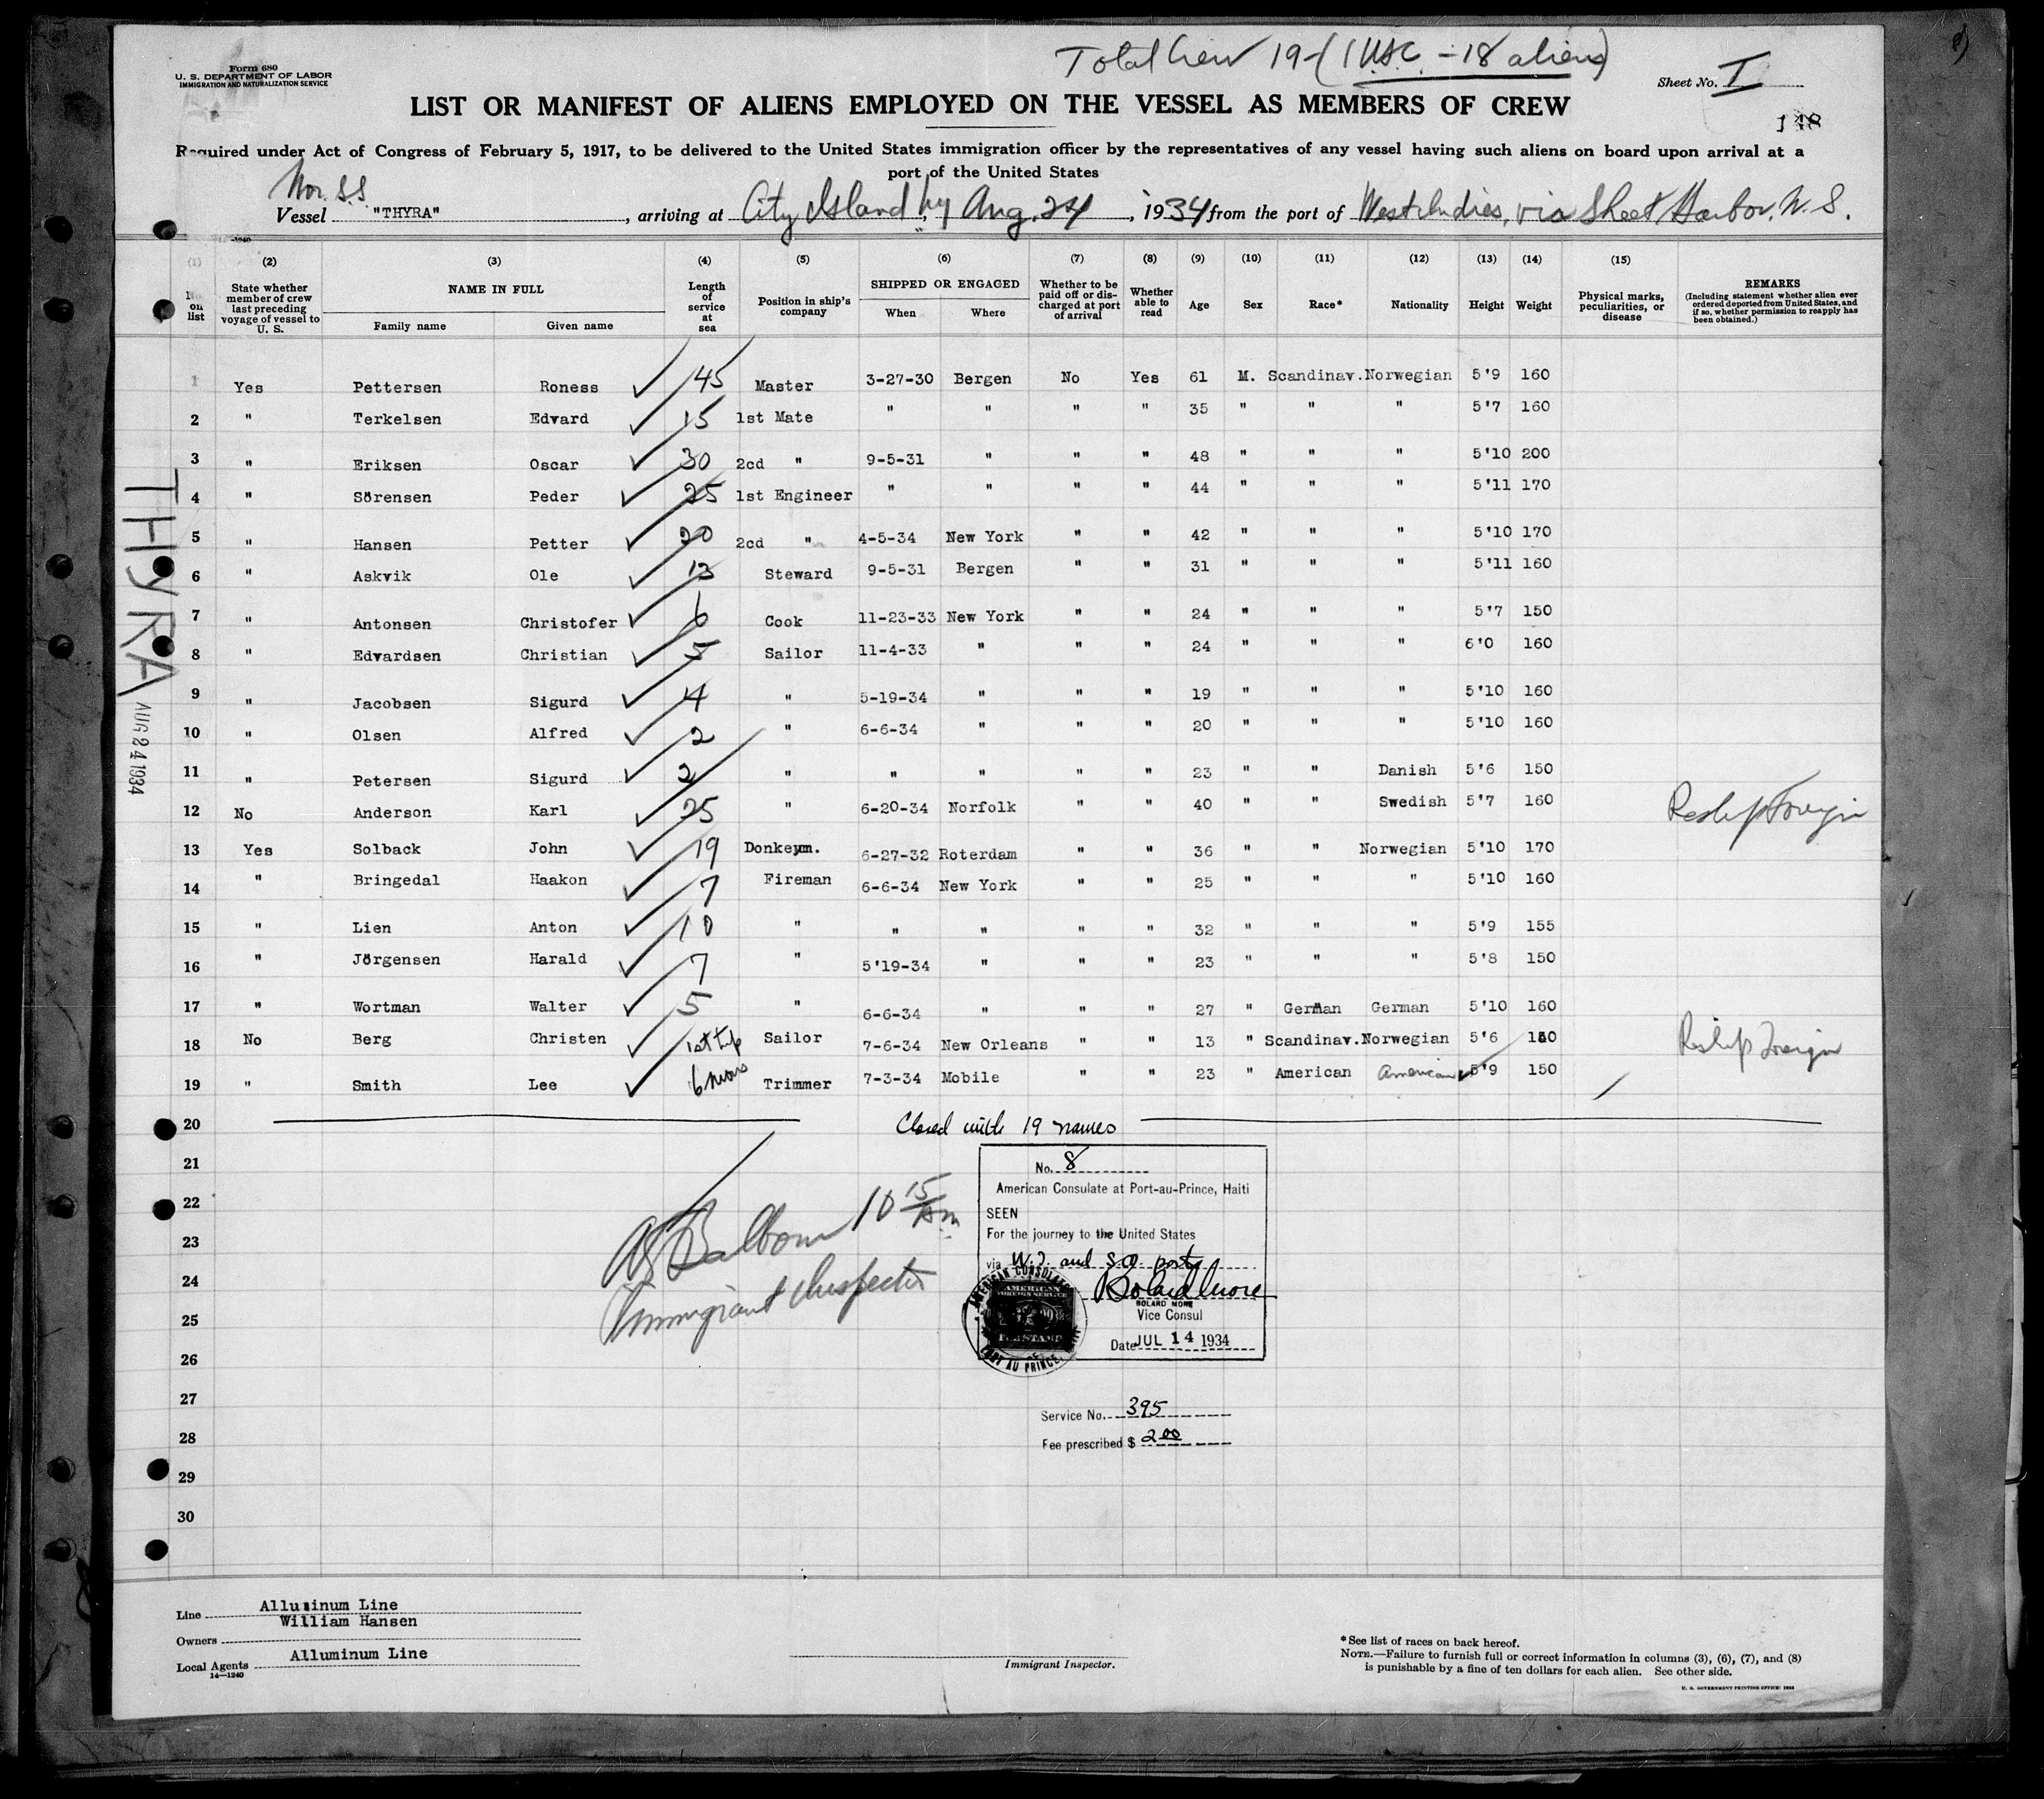 Total Crew 19-(1 USC - 18 aliens)
Form 680
U. S. DEPARTMENT OF LABOR
IMMIGRATION AND NATURALIZATION SERVICE
Sheet No. I
LIST OR MANIFEST OF ALIENS EMPLOYED ON THE VESSEL AS MEMBERS OF CREW
Required under Act of Congress of February 5, 1917, to be delivered to the United States immigration officer by the representatives of any vessel having such aliens on board upon arrival at a
port of the United States
Nor. S.S.
Vessel "THYRA", arriving at City Island, Ny Aug. 24, 1934 from the port of West Indies, via Sheet Harbor, N. S.
(1) (2) (3) (4) (5) (6) (7) (8) (9) (10) (11) (12) (13) (14) (15)
No. on list State whether member of crew last preceding voyage of vessel to U. S. NAME IN FULL Family name Given name Length of service at sea Position in ship's company SHIPPED OR ENGAGED When Where Whether to be paid off or discharged at port of arrival Whether able to read Age Sex Race* Nationality Height Weight Physical marks, peculiarities, or disease REMARKS (Including statement whether alien ever ordered deported from United States, and if so, whether permission to reapply has been obtained.)
1 Yes Pettersen Roness 45 Master 3-27-30 Bergen No Yes 61 M. Scandinav. Norwegian 5'9 160
2 " Terkelsen Edvard 15 1st Mate " " " " 35 " " " 5'7 160
3 " Eriksen Oscar 30 2cd " 9-5-31 " " " 48 " " " 5'10 200
4 " Sörensen Peder 25 1st Engineer " " " " 44 " " " 5'11 170
5 " Hansen Petter 20 2cd " 4-5-34 New York " " 42 " " " 5'10 170
6 " Askvik Ole 13 Steward 9-5-31 Bergen " " 31 " " " 5'11 160
7 " Antonsen Christofer 6 Cook 11-23-33 New York " " 24 " " " 5'7 150
8 " Edvardsen Christian 5 Sailor 11-4-33 " " " 24 " " " 6'0 160
9 " Jacobsen Sigurd 4 " 5-19-34 " " " 19 " " " 5'10 160
10 " Olsen Alfred 2 " 6-6-34 " " " 20 " " " 5'10 160
11 " Petersen Sigurd 2 " " " " " 23 " " Danish 5'6 150
12 No Anderson Karl 25 " 6-20-34 Norfolk " " 40 " " Swedish 5'7 160 Reship Foreign
13 Yes Solback John 19 Donkeym. 6-27-32 Roterdam " " 36 " " Norwegian 5'10 170
14 " Bringedal Haakon 7 Fireman 6-6-34 New York " " 25 " " " 5'10 160
15 " Lien Anton 10 " " " " " 32 " " " 5'9 155
16 " Jörgensen Harald 7 " 5'19-34 " " " 23 " " " 5'8 150
17 " Wortman Walter 5 " 6-6-34 " " " 27 " German German 5'10 160
18 No Berg Christen 1st trip Sailor 7-6-34 New Orleans " " 13 " Scandinav. Norwegian 5'6 Reship Foreign
19 " Smith Lee 6 mos Trimmer 7-3-34 Mobile " " 23 " American American 5'9 150
20
Closed with 19 names
21
22
23
24
25
26
27
28
29
30
THYRA
AUG 24 1934
10 15 am
Immigrant Inspector
No. 8
American Consulate at Port-au-Prince, Haiti
SEEN
For the journey to the United States
via W.I. and S.A. ports
Bolard More
BOLARD MORE
Vice Consul
Date JUL 14 1934
AMERICAN CONSULATE
AMERICAN
FOREIGN SERVICE
FEE STAMP
PORT AU PRINCE
Service No. 395
Fee prescribed $ 2.00
Line Alluminum Line
William Hansen
Owners
Local Agents Alluminum Line
14—1240
Immigrant Inspector.
*See list of races on back hereof.
NOTE.—Failure to furnish full or correct information in columns (3), (6), (7), and (8)
is punishable by a fine of ten dollars for each alien. See other side.
U. S. GOVERNMENT PRINTING OFFICE: 1933